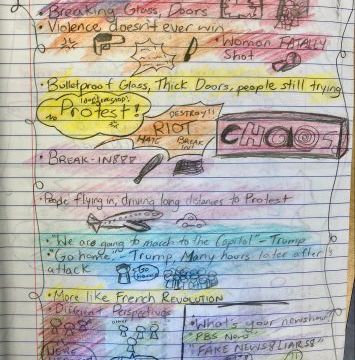 Breaking Glass, Doors
• Violence, doesn't ever win
• Woman FATALLY
Shot
• Bulletproof Glass, Thick Doors, people still trying
Protest!
DESTROY!!
RIOT
HATE BREAK
IN!
CHAOS
• BREAK-IN
• People flying in, driving long distances to Protest
• "We are going to march to the Capitol" - Trump
• "Go home." - Trump, Many hours later after
attack
Go Home
• More like French REVOLUTION
• Different Perspectives
• What's your newshow?
PBS News
"FAKE NEWS! LIARS!"